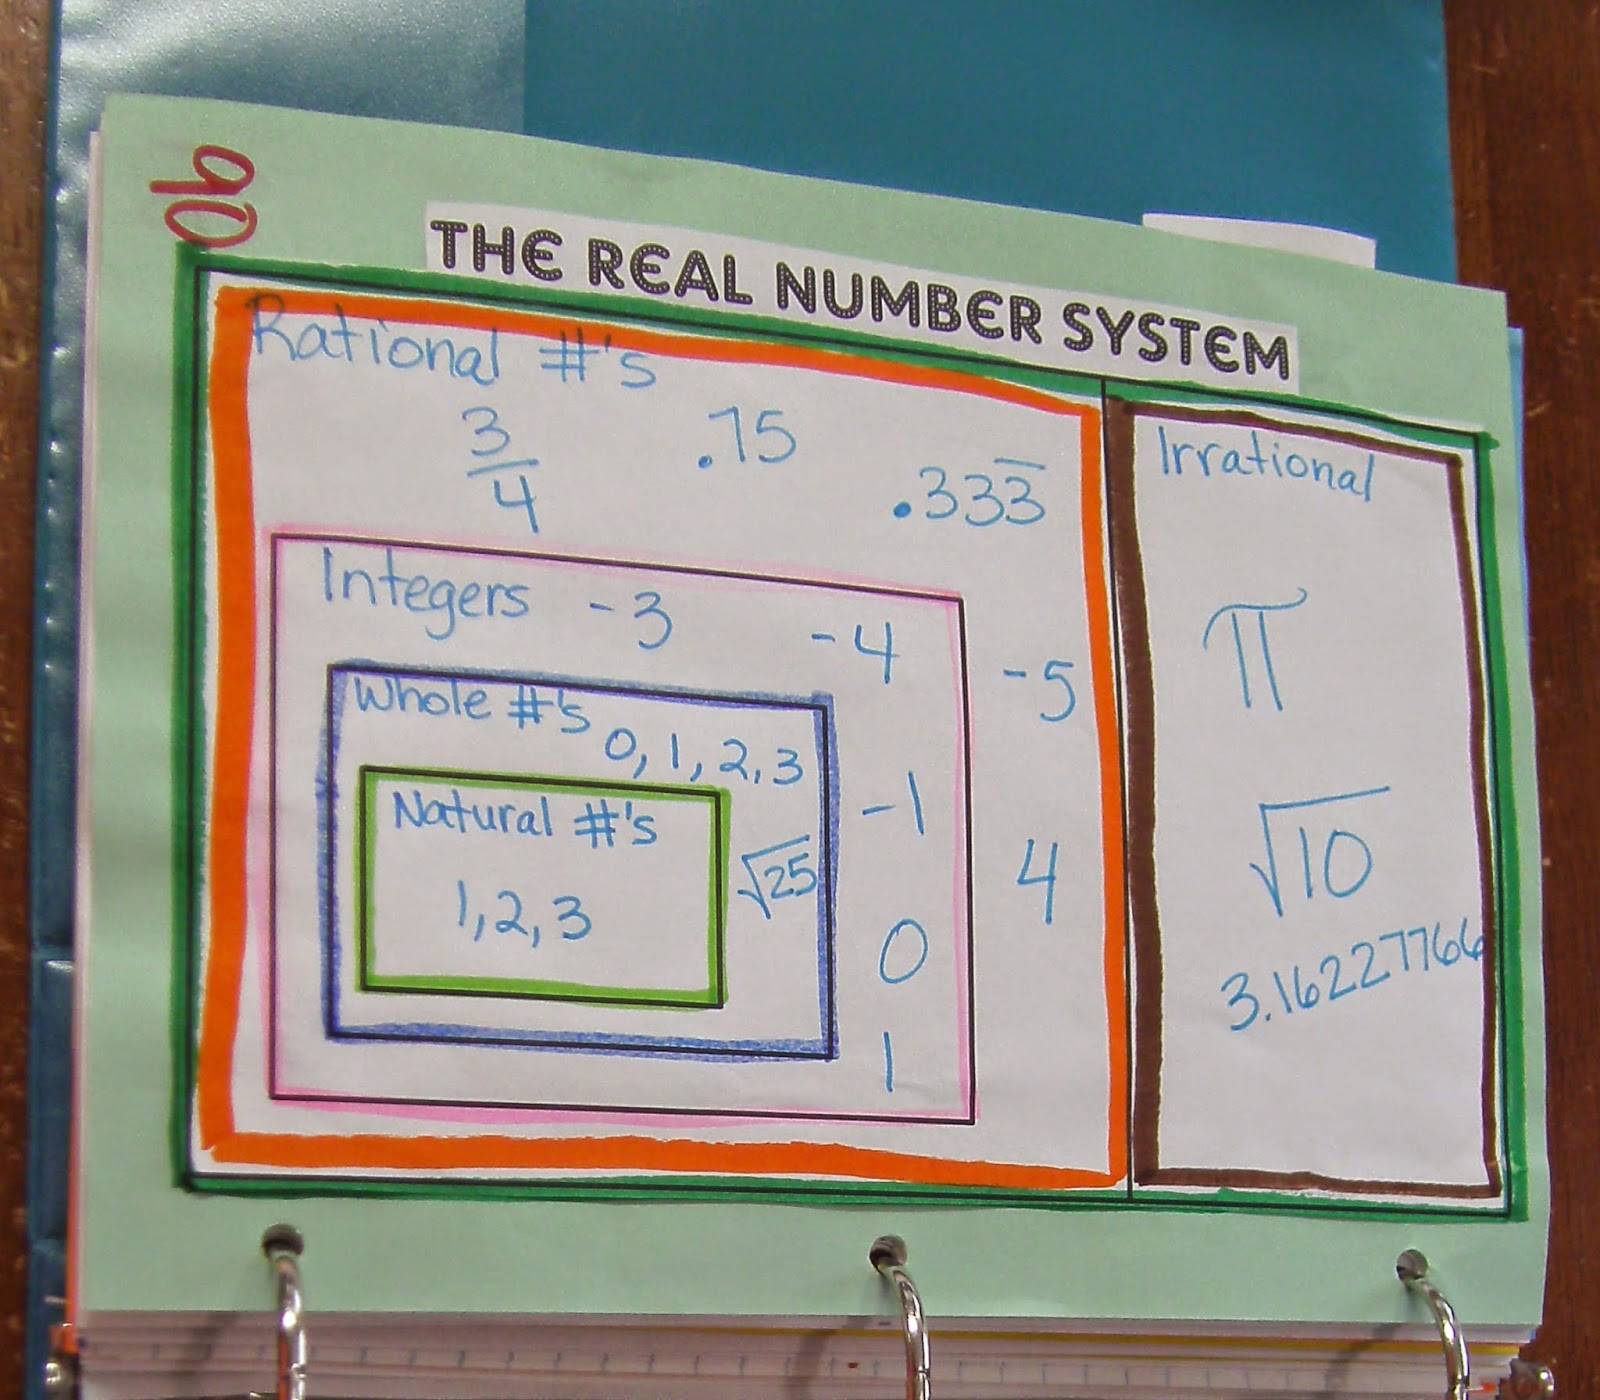 THE REAL NUMBER SYSTEM
Rational #'s
3/4 .75 .333̅
Integers -3 -4
-5
Whole #'s
0, 1, 2, 3
-1
Natural #'s
1, 2, 3
√25
4
0
1
Irrational
π
√10
3.16227766